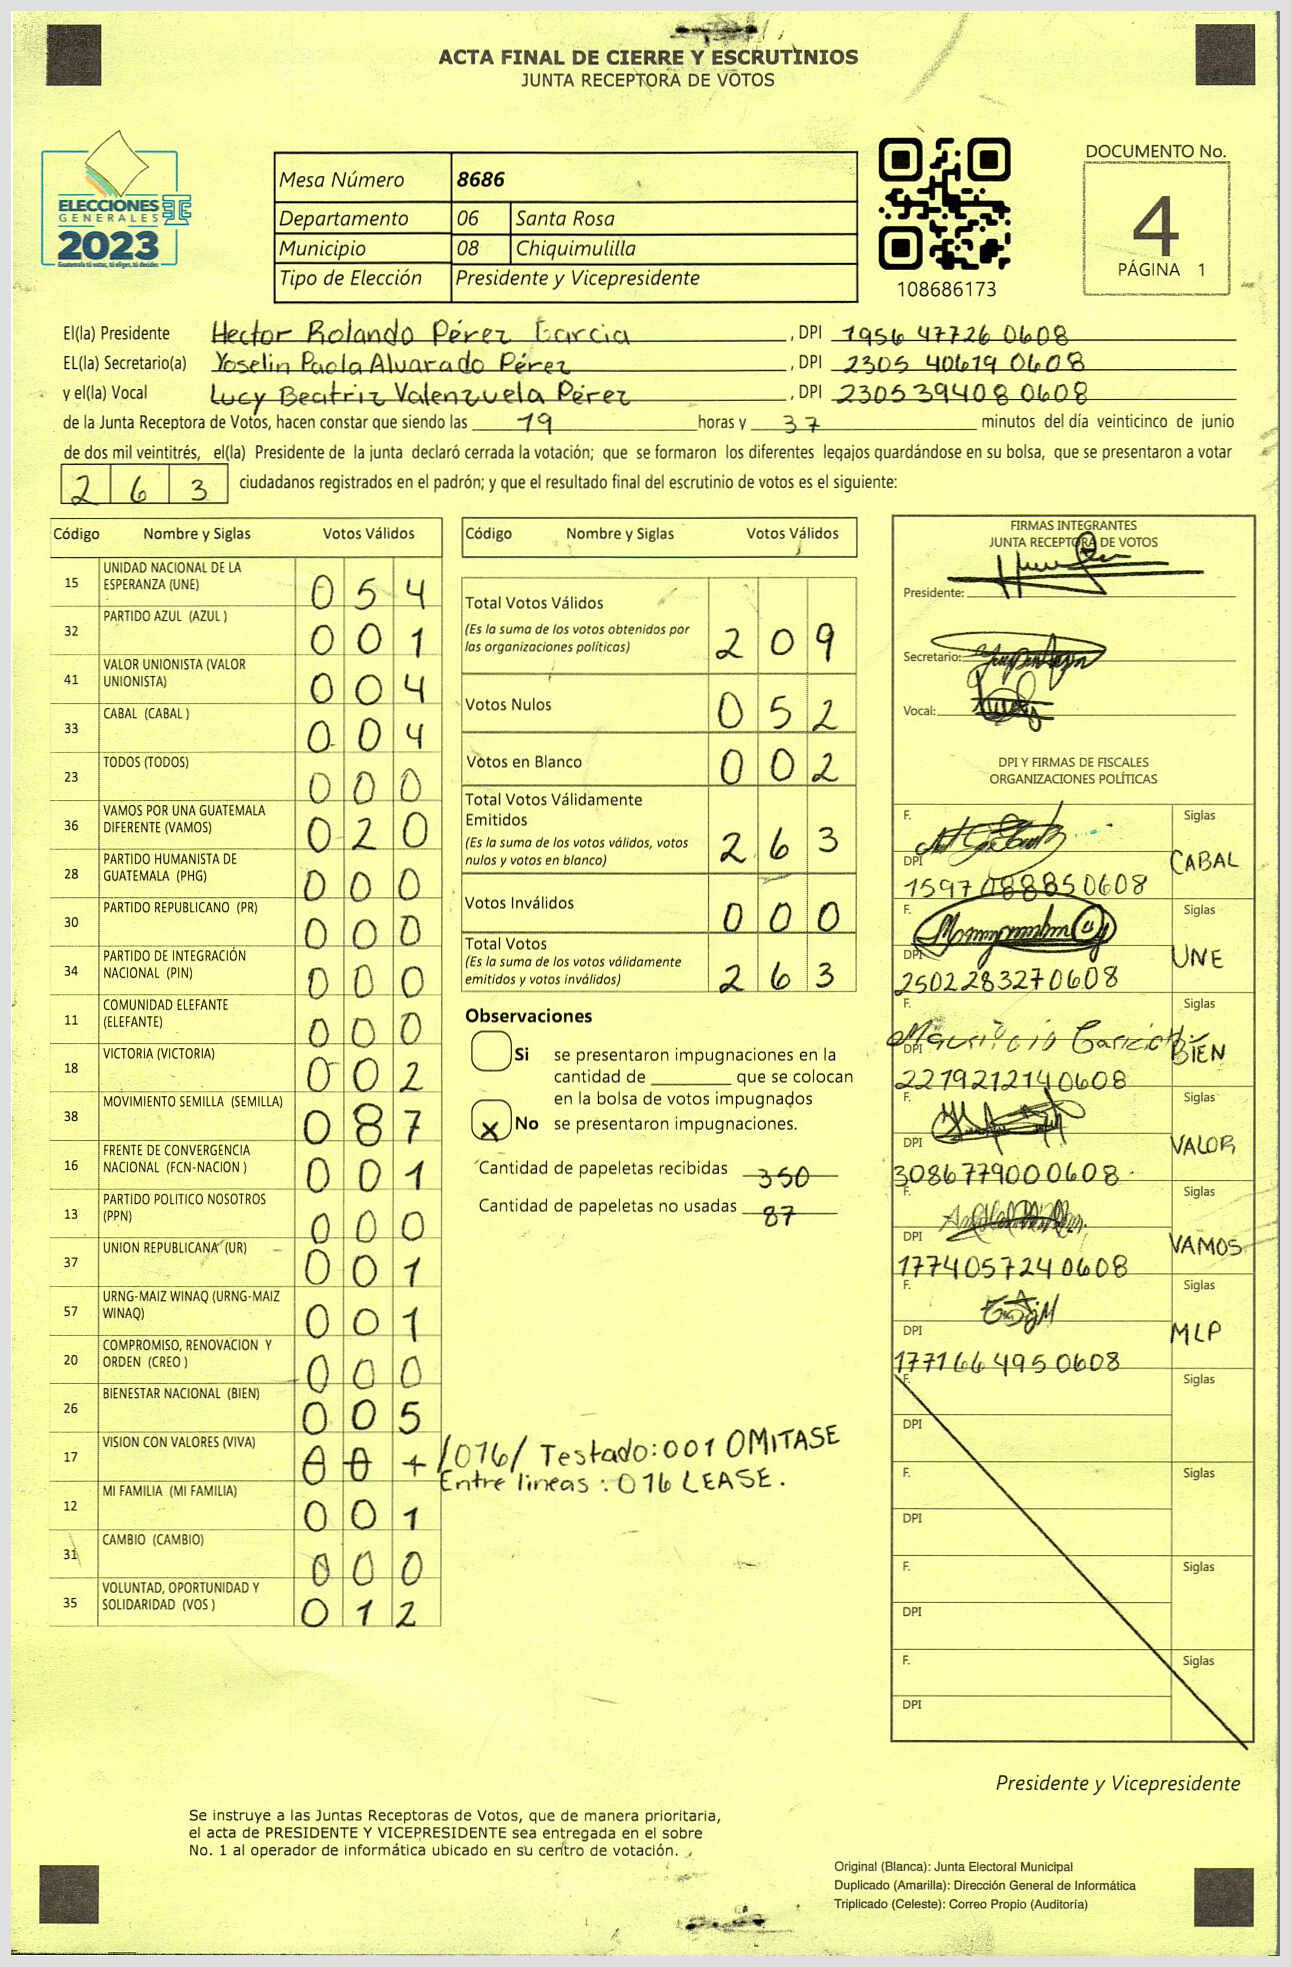 ACTA FINAL DE CIERRE Y ESCRUTINIOS
JUNTA RECEPTORA DE VOTOS
ELECCIONES
GENERALES
2023
Guatemala tú votas, tú eliges, tú decides
Mesa Número 8686
Departamento 06 Santa Rosa
Municipio 08 Chiquimulilla
Tipo de Elección Presidente y Vicepresidente
108686173
DOCUMENTO No.
4
PÁGINA 1
El(la) Presidente Hector Rolando Pérez Garcia, DPI 1956 47726 0608
EL(la) Secretario(a) Yoselin Paola Alvarado Pérez, DPI 2305 40619 0608
y el(la) Vocal Lucy Beatriz Valenzuela Pérez, DPI 2305 39408 0608
de la Junta Receptora de Votos, hacen constar que siendo las 19 horas y 37 minutos del día veinticinco de junio
de dos mil veintitrés, el(la) Presidente de la junta declaró cerrada la votación; que se formaron los diferentes legajos quardándose en su bolsa, que se presentaron a votar
263 ciudadanos registrados en el padrón; y que el resultado final del escrutinio de votos es el siguiente:
Código Nombre y Siglas Votos Válidos
15 UNIDAD NACIONAL DE LA
ESPERANZA (UNE) 054
32 PARTIDO AZUL (AZUL ) 001
41 VALOR UNIONISTA (VALOR
UNIONISTA) 004
33 CABAL (CABAL ) 004
23 TODOS (TODOS) 000
36 VAMOS POR UNA GUATEMALA
DIFERENTE (VAMOS) 020
28 PARTIDO HUMANISTA DE
GUATEMALA (PHG) 000
30 PARTIDO REPUBLICANO (PR) 000
34 PARTIDO DE INTEGRACIÓN
NACIONAL (PIN) 000
11 COMUNIDAD ELEFANTE
(ELEFANTE) 000
18 VICTORIA (VICTORIA) 002
38 MOVIMIENTO SEMILLA (SEMILLA) 087
16 FRENTE DE CONVERGENCIA
NACIONAL (FCN-NACION ) 001
13 PARTIDO POLITICO NOSOTROS
(PPN) 000
37 UNION REPUBLICANA (UR) 001
57 URNG-MAIZ WINAQ (URNG-MAIZ
WINAQ) 001
20 COMPROMISO, RENOVACION Y
ORDEN (CREO ) 000
26 BIENESTAR NACIONAL (BIEN) 005
17 VISION CON VALORES (VIVA) 001 /016/ Testado: 001 OMITASE
Entre lineas: 016 LEASE.
12 MI FAMILIA (MI FAMILIA) 001
31 CAMBIO (CAMBIO) 000
35 VOLUNTAD, OPORTUNIDAD Y
SOLIDARIDAD (VOS ) 012
Código Nombre y Siglas Votos Válidos
Total Votos Válidos
(Es la suma de los votos obtenidos por
las organizaciones políticas) 209
Votos Nulos 052
Votos en Blanco 002
Total Votos Válidamente
Emitidos
(Es la suma de los votos válidos, votos
nulos y votos en blanco) 263
Votos Inválidos 000
Total Votos
(Es la suma de los votos válidamente
emitidos y votos inválidos) 263
Observaciones
Si se presentaron impugnaciones en la
cantidad de ________ que se colocan
en la bolsa de votos impugnados
X No se presentaron impugnaciones.
Cantidad de papeletas recibidas 350
Cantidad de papeletas no usadas 87
FIRMAS INTEGRANTES
JUNTA RECEPTORA DE VOTOS
Presidente:
Secretario:
Vocal:
DPI Y FIRMAS DE FISCALES
ORGANIZACIONES POLÍTICAS
F. Siglas
DPI CABAL
1597088850608
F. Siglas
DPI UNE
2502283270608
F. Siglas
Mauricio
DPI BIEN
2219212140608
F. Siglas
DPI VALOR
3086779000608
F. Siglas
DPI VAMOS
1774057240608
F.
DPI MLP
1771664950608
F. Siglas
DPI
F. Siglas
DPI
F. Siglas
DPI
F. Siglas
DPI
Presidente y Vicepresidente
Se instruye a las Juntas Receptoras de Votos, que de manera prioritaria,
el acta de PRESIDENTE Y VICEPRESIDENTE sea entregada en el sobre
No. 1 al operador de informática ubicado en su centro de votación.
Original (Blanca): Junta Electoral Municipal
Duplicado (Amarilla): Dirección General de Informática
Triplicado (Celeste): Correo Propio (Auditoría)